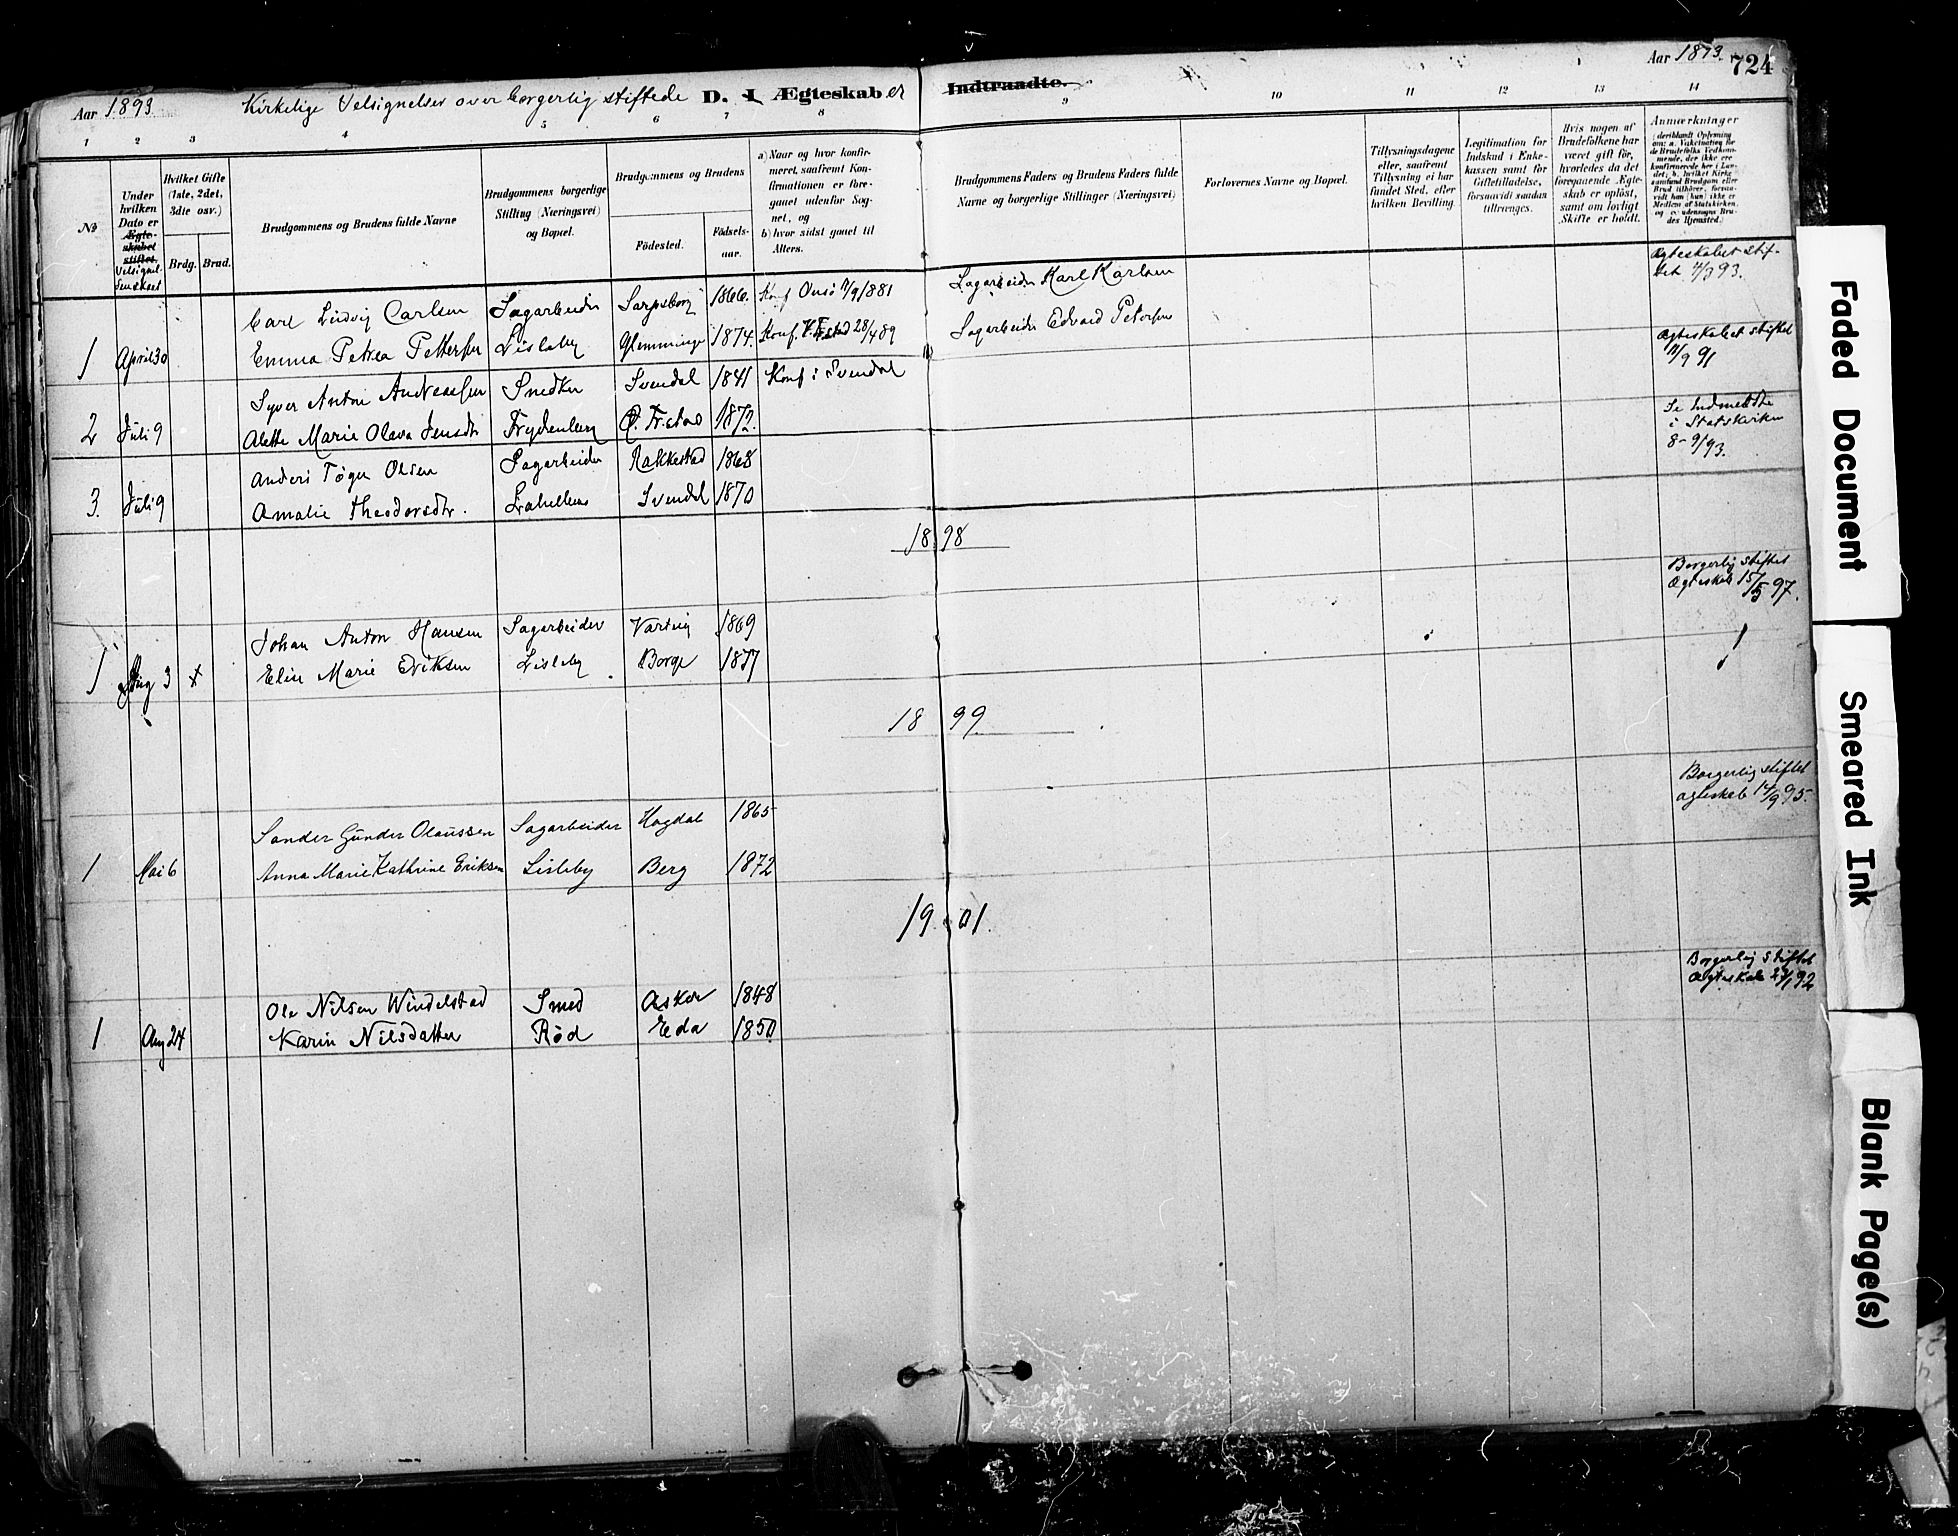 Aar 1893
Kirkelige Velsignelser over borgerlig stiftede D. I. Ægteskaber Indtraadte.
Aar 1893.
724
1 2 3 4 5 6 7 8 9 10 11 12 13 14
No
Under
hvilken
Dato er
Ægte-
skabet
stiftet,
Velsignel-
sen skeet
Hvilket Gifte
(1ste, 2det,
3die osv.)
Brdg.
Brud.
Brudgommens og Brudens fulde Navne
Brudgommens borgerlige
Stilling (Næringsvei)
og Bopæl.
Brudgommens og Brudens
Fødested.
Fødsels-
aar.
a) Naar og hvor konfir-
meret, saafremt Kon-
firmationen er fore-
gaaet udenfor Sog-
net, og
b) hvor sidst gaaet til
Alters.
Brudgommens Faders og Brudens Faders fulde
Navne og borgerlige Stillinger (Næringsvei)
Forlovernes Navne og Bopæl.
Tillysningsdagene
eller, saafremt
Tillysning ei har
fundet Sted, efter
hvilken Bevilling.
Legitimation for
Indskud i Enke-
kassen samt for
Giftetilladelse,
forsaavidt saadan
tiltrænges.
Hvis nogen af
Brudefolkene har
været gift før,
hvorledes da det
foregaaende Ægte-
skab er opløst,
samt om lovligt
Skifte er holdt.
Anmærkninger
Carl Ludvig Carlsen Sagarbeider Sarpsborg 1866. Konf Onsø 1/9 1881 Sagarbeider Karl Karlsen Ægteskabet stif-
tet 7/3 93.
1 April 30 Emma Petrea Pettersen Lisleby Glemminge 1874. Konf. V. Fr.stad 28/4 89 Sagarbeider Edvard Petersen
Syver Anton Andreassen Snedker Svendal 1841 Konf i Svendal Ægteskabet stiftet
11/9 91
2 Juli 9 Alette Marie Olava Jensdtr Frydenberg Ø. Fr.stad 1872.
Anders Tøger Olsen Sagarbeider Rakkestad 1868 Se Indmeldte
i Statskirken
8-9/93.
3. Juli 9 Amalie Theodorsdtr. Svendal 1870
1898
Johan Anton Hansen Sagarbeider Varteig 1869 Borgerlig stiftet
Ægteskab 15/5 97.
1 Aug 3 x Elise Marie Eriksen Lisleby Borge 1877
1899.
Sander Gunder Olaussen Sagarbeider Hogdal 1865 Borgerlig stiftet
ægteskab 14/9 95.
1 Mai 6 Anna Marie Kathrine Eriksen Lisleby Berg 1872
1901.
Ole Nilsen Windelstad Smed Asker 1848 Borgerlig stiftet
Ægteskab 92
1 Aug 24 Karin Nilsdatter Rød Eda 1850
Faded Document
Smeared Ink
Blank Page(s)